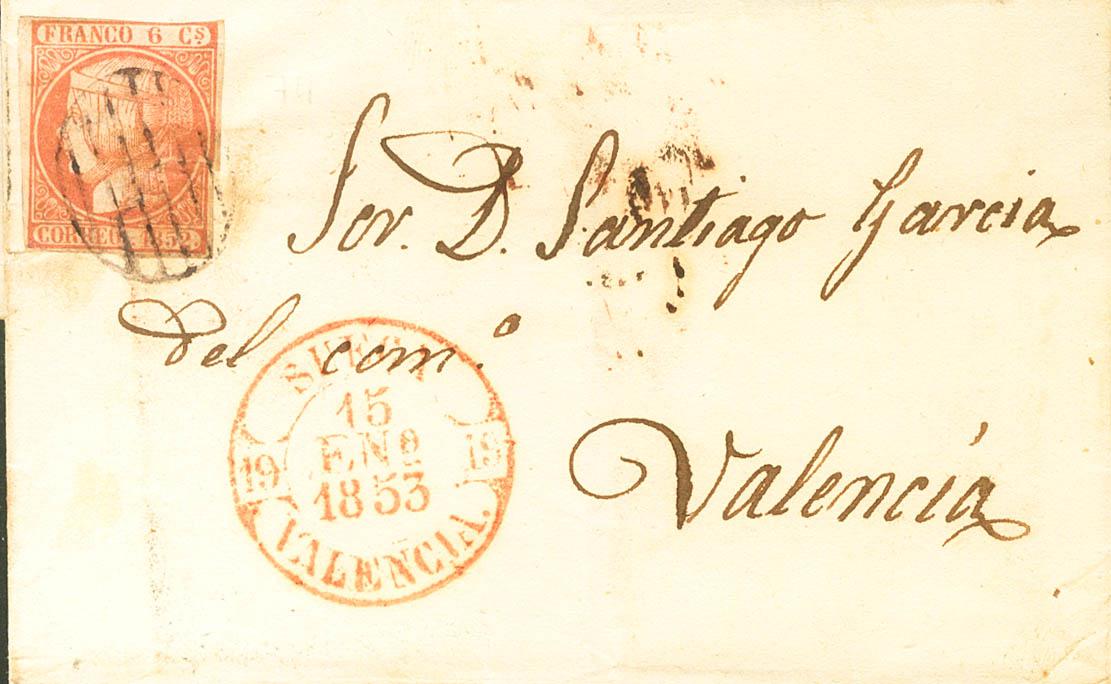 FRANCO 6 Cs
CORREOS 1852
Sor. D. Santiago Garcia
del com.o
Valencia
SUECA
15
ENo
1853
19 19
VALENCIA.